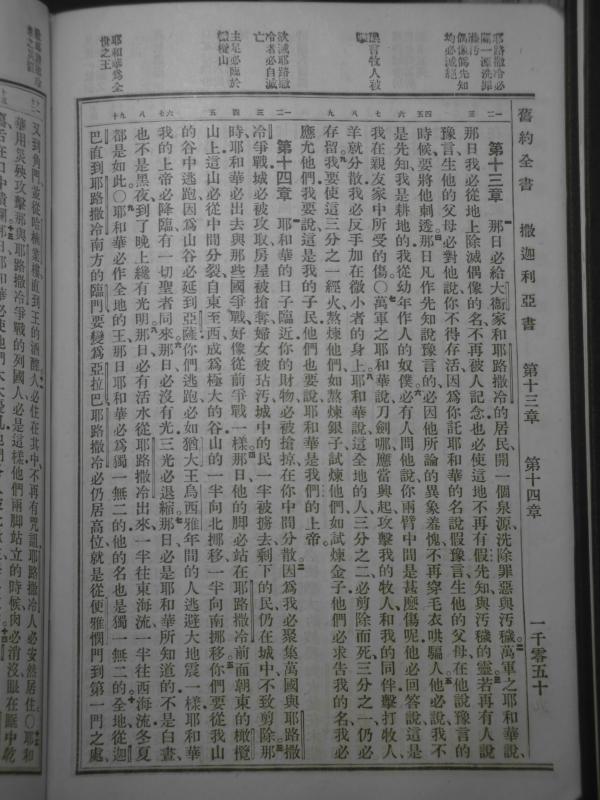 耶路撒冷必
開一源洗罪
滌污
偶像假先知
均必滅絕
預言牧人被
擊
攻滅耶路撒
冷者必自滅
亡
主足必臨於
橄欖山
耶和華爲全
世之王
舊約全書 撒迦利亞書 第十三章 第十四章 一千零五十
第十三章 那日必給大衞家和耶路撒冷的居民開一個泉源洗除罪惡與汚穢萬軍之耶和華說
那日我必從地上除滅偶像的名不再被人記念也必使這地不再有假先知與汚穢的靈若再有人說
豫言生他的父母必對他說你不得存活因爲你託耶和華的名說假豫言生他的父母在他說豫言的
時候要將他刺透那日凡作先知說豫言的必因他所論的異象羞愧不再穿毛衣哄騙人他必說我不
是先知我是耕地的我從幼年作人的奴僕必有人問他說你兩臂中間是甚麽傷呢他必回答說這是
我在親友家中所受的傷〇萬軍之耶和華說刀劍哪應當興起攻擊我的牧人和我的同伴擊打牧人
羊就分散我必反手加在微小者的身上耶和華說這全地的人三分之二必剪除而死三分之一仍必
存留我要使這三分之一經火熬煉他們如熬煉銀子試煉他們如試煉金子他們必求告我的名我必
應允他們我要說這是我的子民他們也要說耶和華是我們的上帝
第十四章 耶和華的日子臨近你的財物必被搶掠在你中間分散因爲我必聚集萬國與耶路撒
冷爭戰城必被攻取房屋被搶奪婦女被玷汚城中的民一半被擄去剩下的民仍在城中不致剪除那
時耶和華必出去與那些國爭戰好像從前爭戰一樣那日他的脚必站在耶路撒冷前面朝東的橄欖
山上這山必從中間分裂自東至西成爲極大的谷山的一半向北挪移一半向南挪移你們要從我山
的谷中逃跑因爲山谷必延到亞薩你們逃跑必如猶大王烏西雅年間的人逃避大地震一樣耶和華
我的上帝必降臨有一切聖者同來那日必沒有光三光必退縮那日必是耶和華所知道的不是白晝
也不是黑夜到了晚上纔有光明那日必有活水從耶路撒冷出來一半往東海流一半往西海流冬夏
都是如此〇耶和華必作全地的王那日耶和華必爲獨一無二的他的名也是獨一無二的全地從迦
巴直到耶路撒冷南方的臨門要變爲亞拉巴耶路撒冷必仍居高位就是從便雅憫門到第一門之處
又到角門並從哈楠業樓直到王的酒醡人必住在其中不再有咒詛耶路撒冷人必安然居住〇耶和
華用災殃攻擊那與耶路撒冷爭戰的列國人必是這樣他們兩脚站立的時候肉必消沒眼在眶中乾